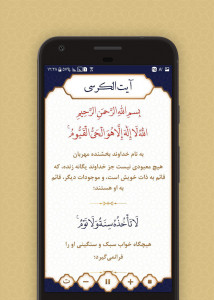 آیت الکرسی
بِسمِ اللهِ الرَّحمَنِ الرَّحِیمِ
اللَّهُ لَا إِلَهَ إِلَّا هُوَ الْحَيُّ الْقَيُّومُ ۚ
به نام خداوند بخشنده مهربان
هیچ معبودی نیست جز خداوند یگانه زنده، که
قائم به ذات خویش است، و موجودات دیگر، قائم
به او هستند؛
لَا تَأْخُذُهُ سِنَةٌ وَلَا نَوْمٌ ۚ
هیچگاه خواب سبک و سنگینی او را
فرانمی‌گیرد؛